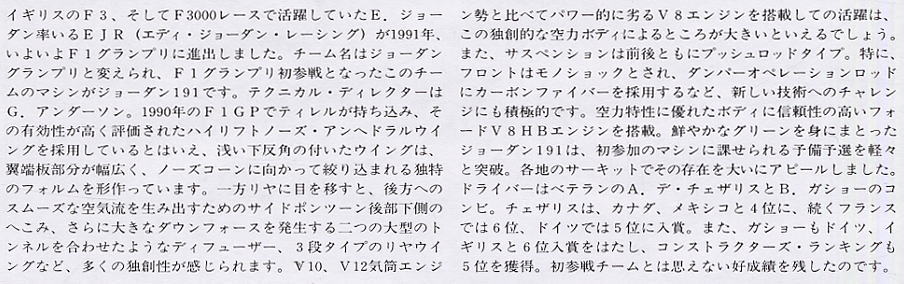 イギリスのF3、そしてF3000レースで活躍していたE．ジョー
ダン率いるEJR（エディ・ジョーダン・レーシング）が1991年、
いよいよF1グランプリに進出しました。チーム名はジョーダン
グランプリと変えられ、F1グランプリ初参戦となったこのチー
ムのマシンがジョーダン191です。テクニカル・ディレクターは
G．アンダーソン。1990年のF1GPでティレルが持ち込み、そ
の有効性が高く評価されたハイリフトノーズ・アンヘドラルウイ
ングを採用しているとはいえ、浅い下反角の付いたウイングは、
翼端板部分が幅広く、ノーズコーンに向かって絞り込まれる独特
のフォルムを形作っています。一方リヤに目を移すと、後方への
スムーズな空気流を生み出すためのサイドポンツーン後部下側の
へこみ、さらに大きなダウンフォースを発生する二つの大型のト
ンネルを合わせたようなディフューザー、3段タイプのリヤウイ
ングなど、多くの独創性が感じられます。V10、V12気筒エンジ
ン勢と比べてパワー的に劣るV8エンジンを搭載しての活躍は、
この独創的な空力ボディによるところが大きいといえるでしょう。
また、サスペンションは前後ともにプッシュロッドタイプ。特に、
フロントはモノショックとされ、ダンパーオペレーションロッド
にカーボンファイバーを採用するなど、新しい技術へのチャレン
ジにも積極的です。空力特性に優れたボディに信頼性の高いフォ
ードV8HBエンジンを搭載。鮮やかなグリーンを身にまとった
ジョーダン191は、初参加のマシンに課せられる予備予選を軽々
と突破。各地のサーキットでその存在を大いにアピールしました。
ドライバーはベテランのA．デ・チェザリスとB．ガショーのコ
ンビ。チェザリスは、カナダ、メキシコと4位に、続くフランス
では6位、ドイツでは5位に入賞。また、ガショーもドイツ、イ
ギリスと6位入賞をはたし、コンストラクターズ・ランキングも
5位を獲得。初参戦チームとは思えない好成績を残したのです。